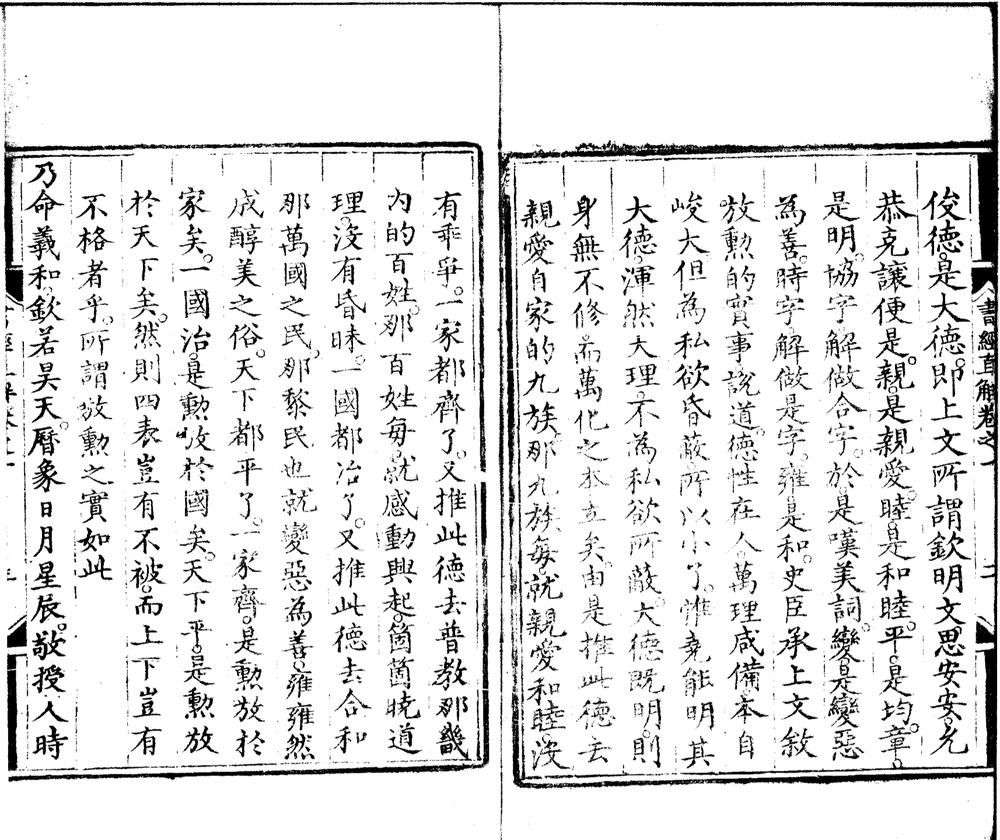 書經直解卷之一 二
俊德。是大德。即上文所謂欽明文思安安。允
恭克讓便是。親。是親愛。睦。是和睦。平。是均。章。
是明。協字。解做合字。於是嘆美詞。變。是變惡
為善。時字。解做是字。雍。是和。史臣承上文敘
放勳的實事。說道。德性在人。萬理咸備。本自
峻大。但為私欲昏蔽。所以小了。惟堯能明其
大德。渾然大理。不為私欲所蔽。大德既明。則
身無不修。而萬化之本立矣。由是推此德去
親愛自家的九族。那九族每。就親愛和睦。沒
有乖爭。一家都齊了。又推此德去普教那畿
內的百姓。那百姓每。就感動興起。箇箇曉道
理。沒有昏昧。一國都治了。又推此德去合和
那萬國之民。那黎民也就變惡為善。雍雍然
成醇美之俗。天下都平了。一家齊。是勳放於
家矣。一國治。是勳放於國矣。天下平。是勳放
於天下矣。然則四表豈有不被。而上下豈有
不格者乎。所謂放勳之實如此
乃命羲和。欽若昊天。曆象日月星辰。敬授人時